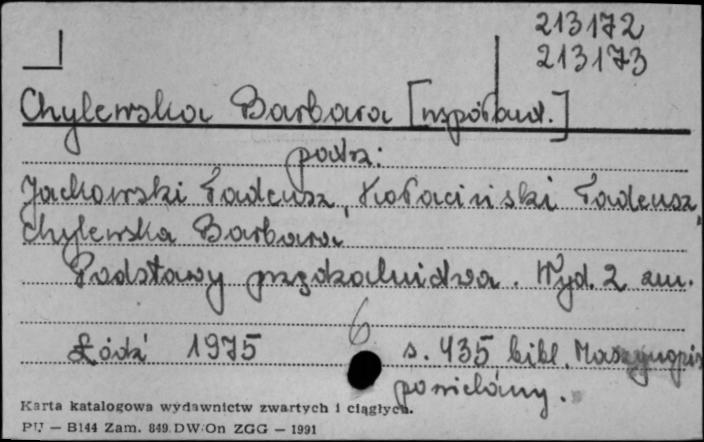 213172
213173
Chylewska Barbara [współaut.]
patrz:
Jackowski Tadeusz, Kołaciński Tadeusz,
Chylewska Barbara
Podstawy przędzalnictwa. Wyd. 2 zm.
Łódź 1975 6 s. 435 bibl. Maszynopis
powielany.
Karta katalogowa wydawnictw zwartych i ciągłych.
PU — B144 Zam. 849. DW/On ZGG — 1991